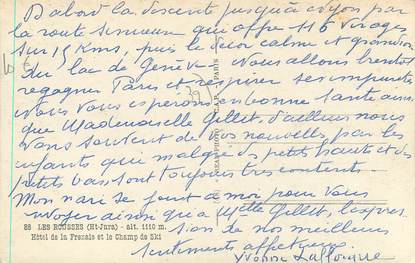 D'abord la descente jusqu'à Nyon par
la route sinueuse que offre 116 virages
sur 19 Kms, puis le décor calme et grandiose
du lac de Genève. Nous allons bientôt
regagner Paris et respirer ses impuretés
Nous vous espérons en bonne santé ainsi
que Mademoiselle Gillet, d'ailleurs nous
avons souvent de vos nouvelles par les
enfants qui malgré des petits hauts et des
petits bas sont toujours très contents.
Mon mari se joint à moi pour vous
envoyer ainsi qu'à Melle Gillet, l'expres-
sion de nos meilleurs
sentiments affectueux.
Yvonne
88 LES ROUSSES (Ht-Jura) - alt. 1110 m.
Hôtel de la Frezaie et le Champ de Ski
PARIS